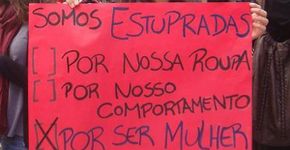 SOMOS ESTUPRADAS
[ ] POR NOSSA ROUPA
[ ] POR NOSSO
COMPORTAMENTO
[X] POR SER MULHER